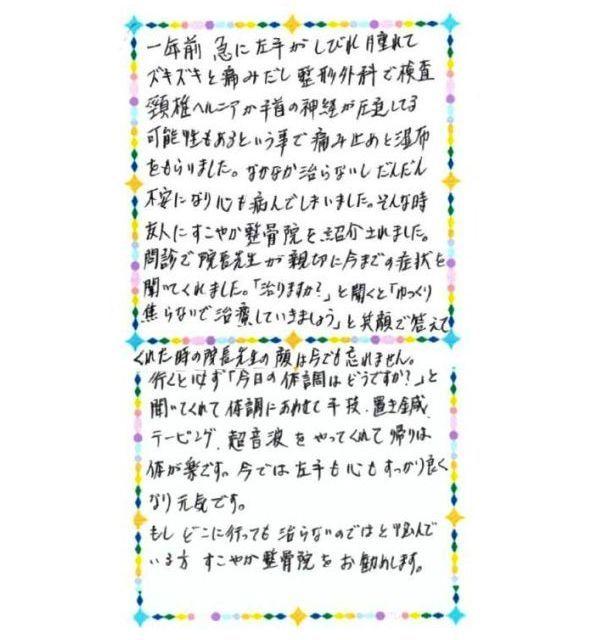 一年前 急に左手がしびれ腫れて
ズキズキと痛みだし整形外科で検査
頸椎ヘルニアか手首の神経が圧迫してる
可能性もあるという事で痛み止めと湿布
をもらりました。なかなか治らないしだんだん
不安になり心も病んでしまいました。そんな時
友人にすこやか整骨院を紹介されました。
問診で院長先生が親切に今までの症状を
聞いてくれました。「治りますか?」と聞くと「ゆっくり
焦らないで治療していきましょう」と笑顔で答えて
くれた時の院長先生の顔は今でも忘れません。
行くと必ず「今日の体調はどうですか?」と
聞いてくれて体調にあわせて手技、置き鍼、
テーピング、超音波をやってくれて帰りは
体が楽です。今では左手も心もすっかり良く
なり元気です。
もしどこに行っても治らないのではと悩んで
いる方 すこやか整骨院をお勧めします。